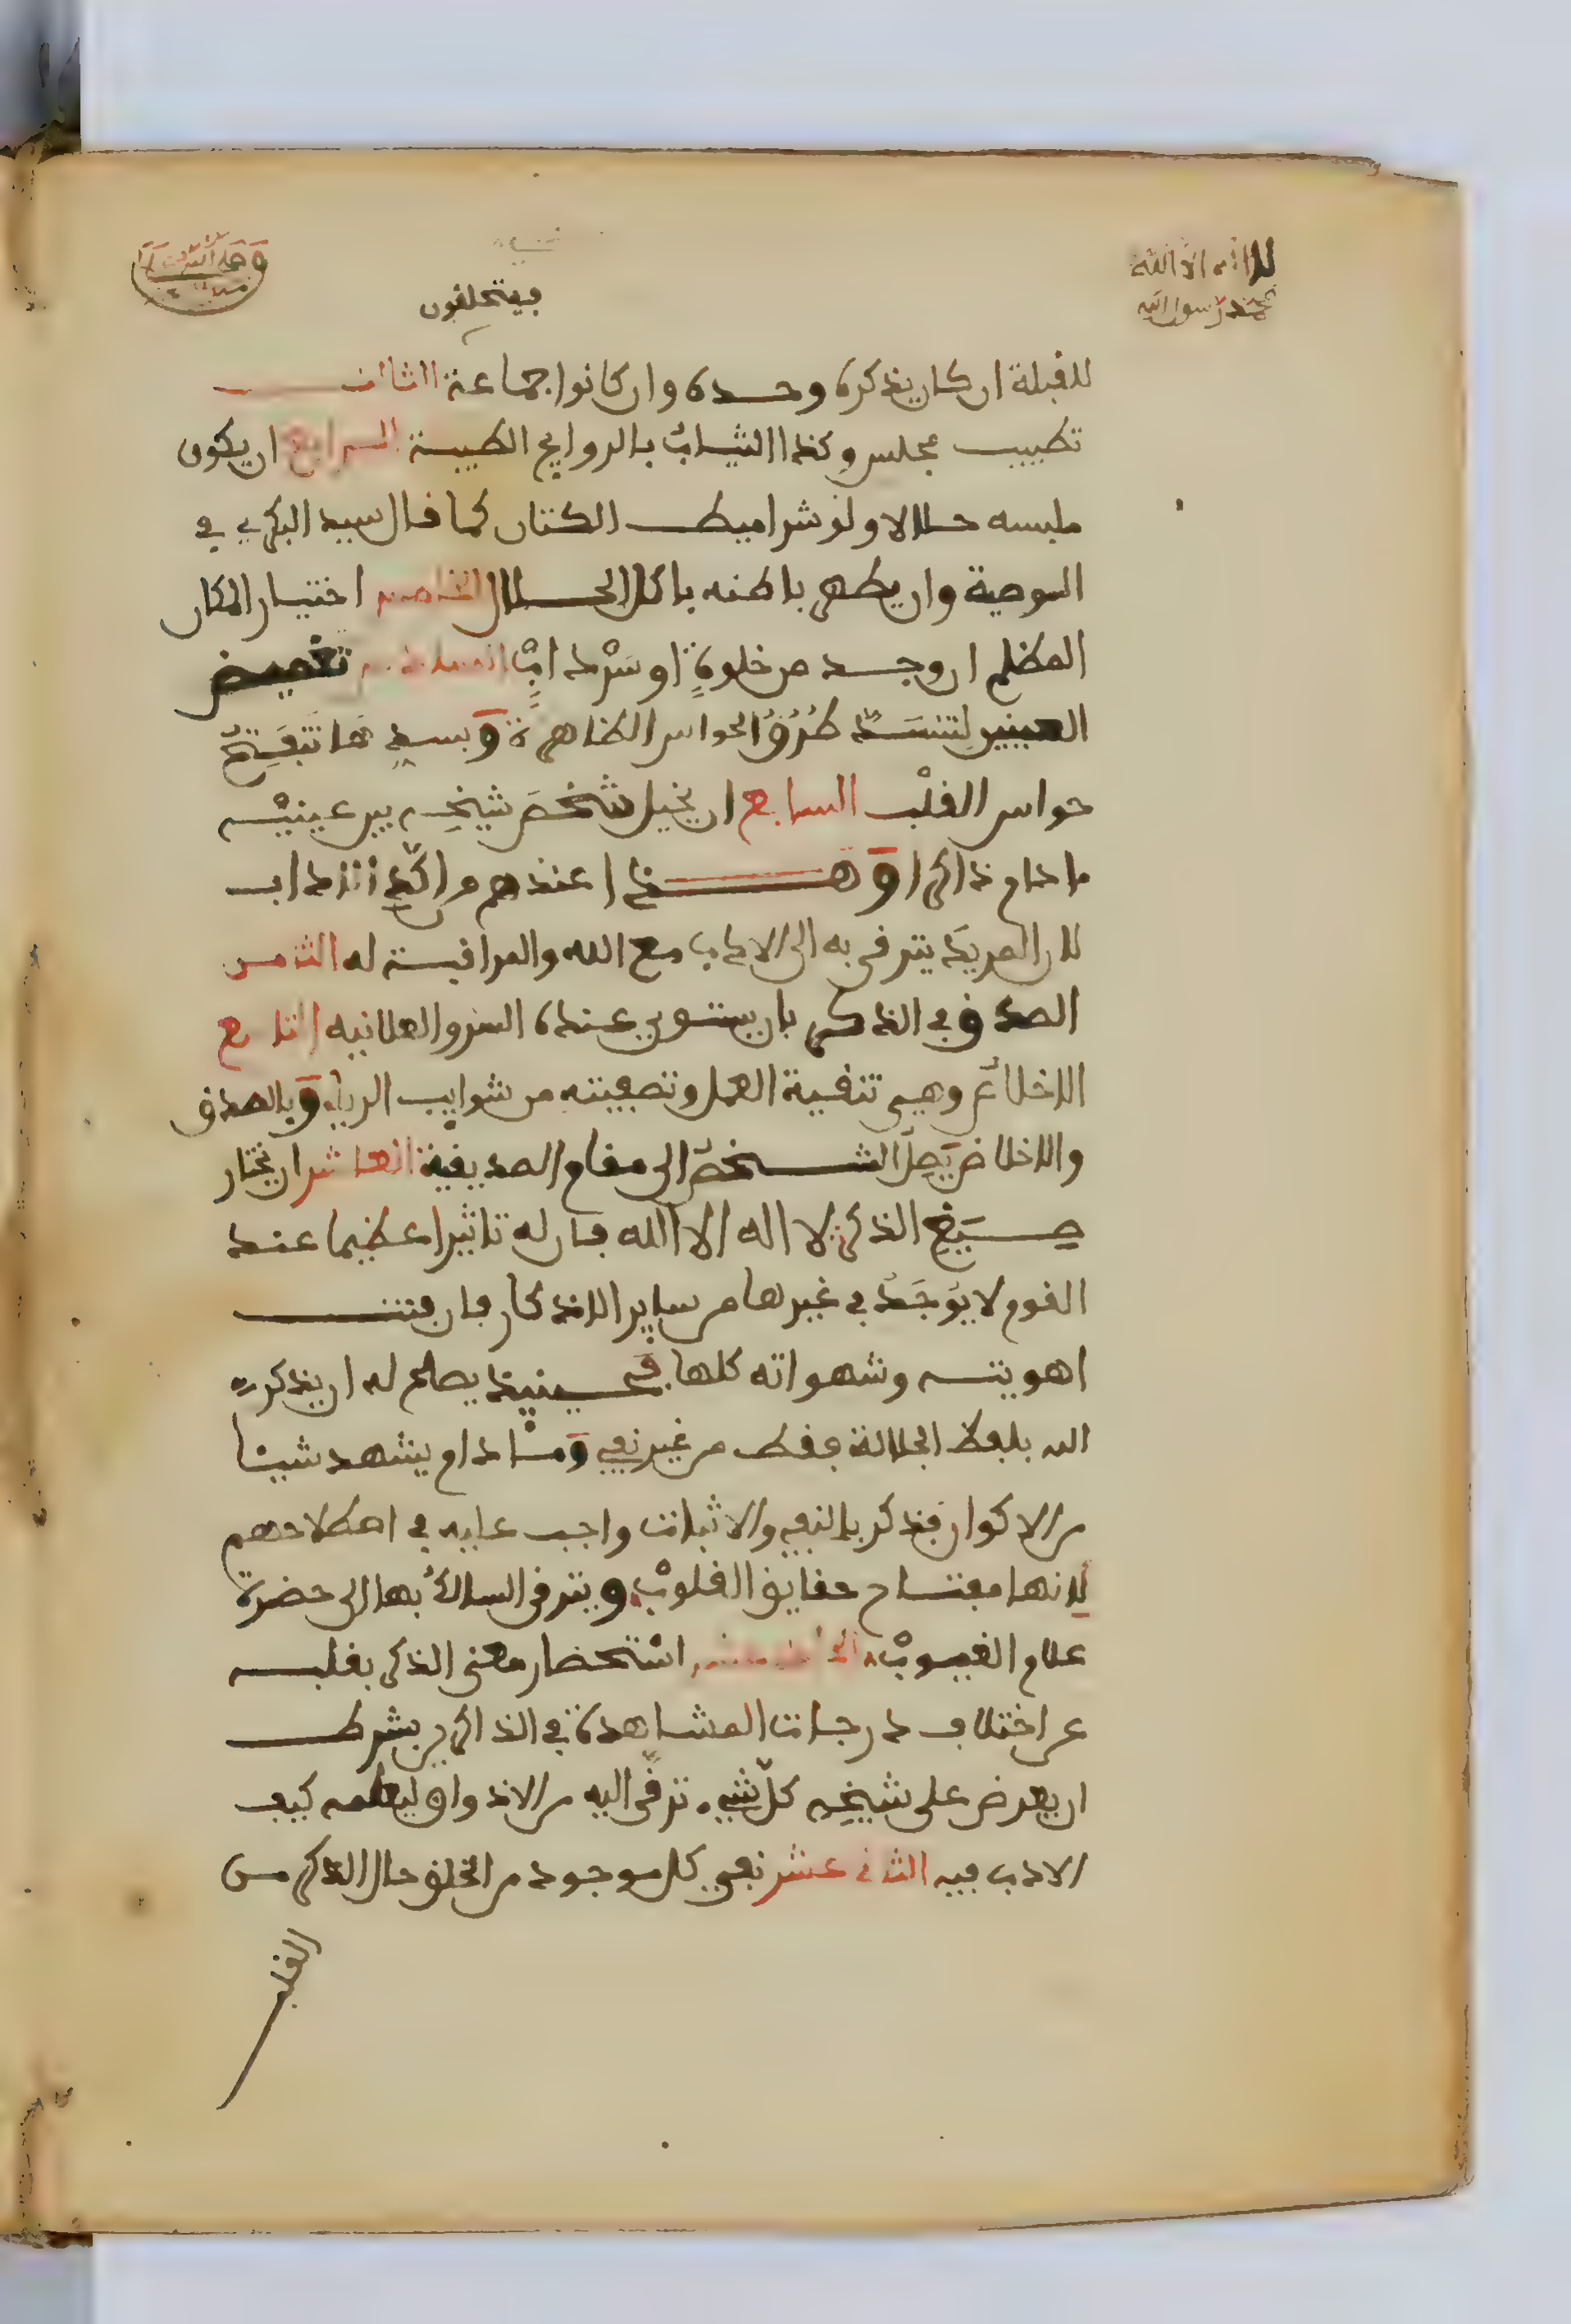 لا اله الا الله
محمد رسول الله
فيتحلقون
للقبلة ان كان يذكره وحده وان كانوا جماعة الثالث
تطييب مجلس وكذا الثياب بالروايح الطيبة الرابع ان يكون
ملبسه حلالا ولو شراميط الكتان كما قال سيد البكري في
الوصية وان يطهر باطنه باكل الحلال الخامس اختيار المكان
المظلم ان وجد من خلوة او سَرْداب السادس تغميض
العينين لتنسَدَّ طُرُقُ الحواس الظاهرة وَبسدها تَنفَتِحُ
حواس القلْب السابع ان يخيل شخصَ شيخِه بين عينيْه
ما دام ذاكرا وَهذا عندهم من اكّدِ الاداب
لان المريد يترقى به الى الادب مع الله والمراقبة له الثامن
الصدق في الذكر بان يستوي عنده السر والعلانيه التاسع
الاخلاص وهي تنقية العمل وتصفيته من شوايب الرياء وَبالصدق
والاخلاص يَصِلُ الشخصُ الى مقام الصديقية العاشر ان يختار
صِيَغِ الذكر لا اله الا الله فان له تاثيرا عظيما عند
القوم لا يُوجَدُ في غيرها من ساير الاذكار فان فنت
اهويته وشهواته كلها فحينيذ يصلح له ان يذكر
الله بلفظ الجلالة فقط من غير نفي وَما دام يشهد شيئا
من الاكوان فذكر بالنفي والاثبات واجب عليه في اصطلاحهم
لانها مفتاح حقايق القلوبْ ويترقى السالكُ بها الى حضرة
علام الغيوبْ الحادي عشر استحضار معنى الذكر بقلبه
عن اختلاف درجات المشاهدة في الذاكرين بشرط
ان يعرض على شيخِه كلّ شيء ترقّى اليه من الاذواق ليعلمه كيف
الادب فيه الثاني عشر نفي كل موجود من الخلق حال الذكر من
القلب